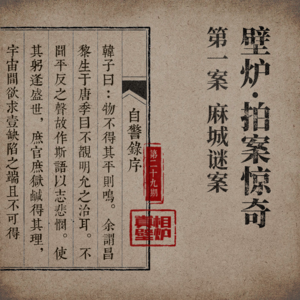 壁炉·拍案惊奇
第一案 麻城谜案
自警錄序
第二十九期
真相
壁炉
韓子曰：物不得其平則鳴。余謂昌
黎生于唐季目不覩明允之治耳。不
聞平反之聲故作斯語以志悲憫。使
其躬逢盛世，庶官庶獄咸得其理，
宇宙間欲求壹缺陷之端且不可得